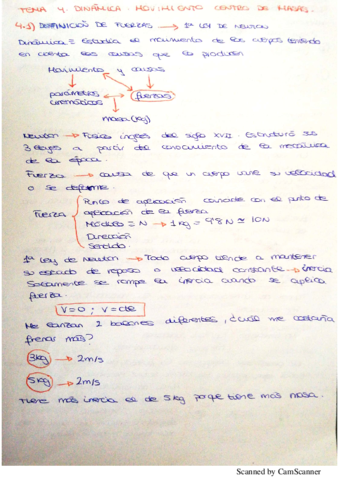 TEMA 4. DINÁMICA: MOVIMIENTO CENTRO DE MASAS.
4.1) DEFINICIÓN DE FUERZAS → 1ª LEY DE NEWTON
Dinámica = Estudia el movimiento de los cuerpos teniendo
en cuenta las causas que lo producen
Movimiento y causas
parámetros cinemáticos
fuerzas
masa (kg)
Newton → Físico inglés del siglo XVII. Estructuró sus
3 leyes a partir del conocimiento de la mecánica
de la época.
Fuerza → causa de que un cuerpo varíe su velocidad
o se deforme.
Fuerza
Punto de aplicación coincide con el punto de
aplicación de la fuerza
Módulo = N → 1kg = 9'8 N ≈ 10N
Dirección
Sentido.
1ª Ley de Newton → Todo cuerpo tiende a mantener
su estado de reposo o velocidad constante → inercia
Solamente se rompe la inercia cuando se aplica
fuerza.
V=0 ; V=cte
Me lanzan 2 balones diferentes, ¿cuál me costaría
frenar más?
3kg → 2m/s
5kg → 2m/s
Tiene más inercia el de 5kg porque tiene más masa.
Scanned by CamScanner